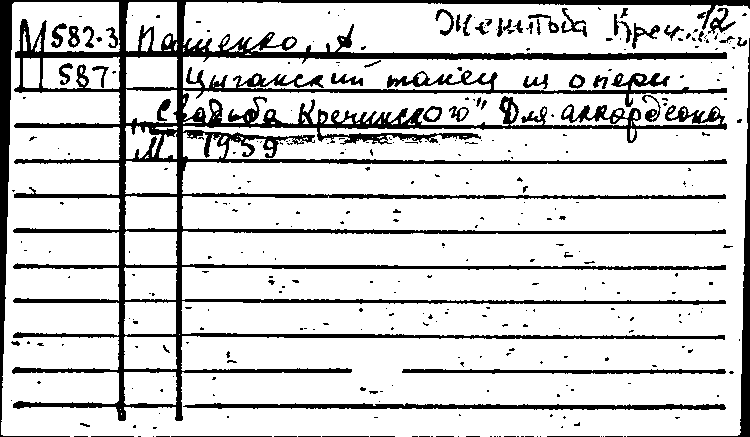 Женитьба Креч 12
М 582-3 Пащенко, А.
587 Цыганский танец из оперы
„Свадьба Кречинского". Для аккордеона.
М., 1959